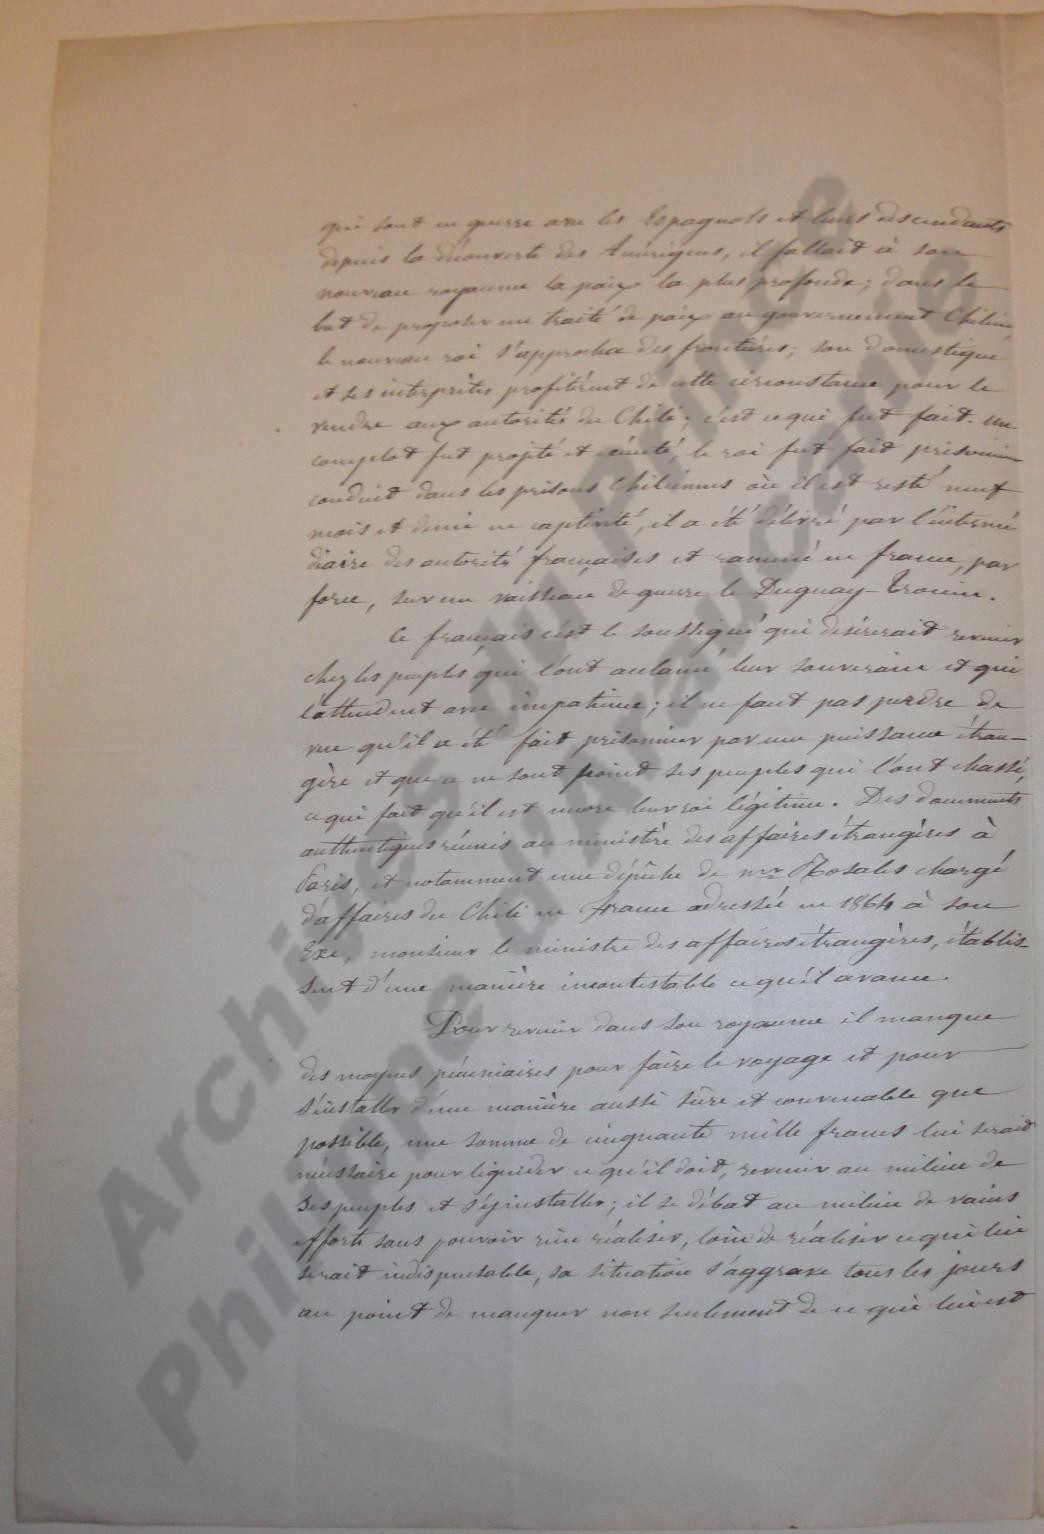 qui sont en guerre avec les Espagnols et leurs descendants
depuis la découverte des Amériques, il fallait à son
nouveau royaume la paix la plus profonde; dans le
but de proposer un traité de paix au gouvernement Chilien,
le nouveau roi s'approcha des frontières; son domestique
et ses interprètes profitèrent de cette circonstance pour le
vendre aux autorités du Chili; c'est ce qui fut fait. un
complot fut projeté et exécuté, le roi fut fait prisonnier
conduit dans les prisons Chiliennes où il est resté neuf
mois et demi en captivité, il a été délivré par l'intermé
diaire des autorités françaises et ramené en france, par
force, sur un vaisseau de guerre le Duguay-Trouin.
Ce français c'est le soussigné qui désirerait revenir
chez les peuples qui l'ont acclamé leur souverain et qui
l'attendent avec impatience; il ne faut pas perdre de
vue qu'il a été fait prisonnier par une puissance étran-
gère et que ce ne sont point ses peuples qui l'ont chassé,
ce qui fait qu'il est encore leur roi légitime. Des documents
authentiques réunis au ministère des affaires étrangères à
Paris, et notamment une dépêche de mr Rosales chargé
d'affaires du Chili en france adressée en 1864 à son
Exe, monsieur le ministre des affaires étrangères, établis-
sent d'une manière incontestable ce qu'il avance.
Pour revenir dans son royaume il manque
des moyens pécuniaires pour faire le voyage et pour
s'installer d'une manière aussi sûre et convenable que
possible, une somme de cinquante mille francs lui serait
nécessaire pour liquider ce qu'il doit, revenir au milieu de
ses peuples et s'y installer; il se débat au milieu de vains
efforts sans pouvoir rien réaliser, loin de réaliser ce qui lui
serait indispensable, sa situation s'aggrave tous les jours
au point de manquer non seulement de ce qui lui est
Archives du Prince
Philippe d'Araucanie